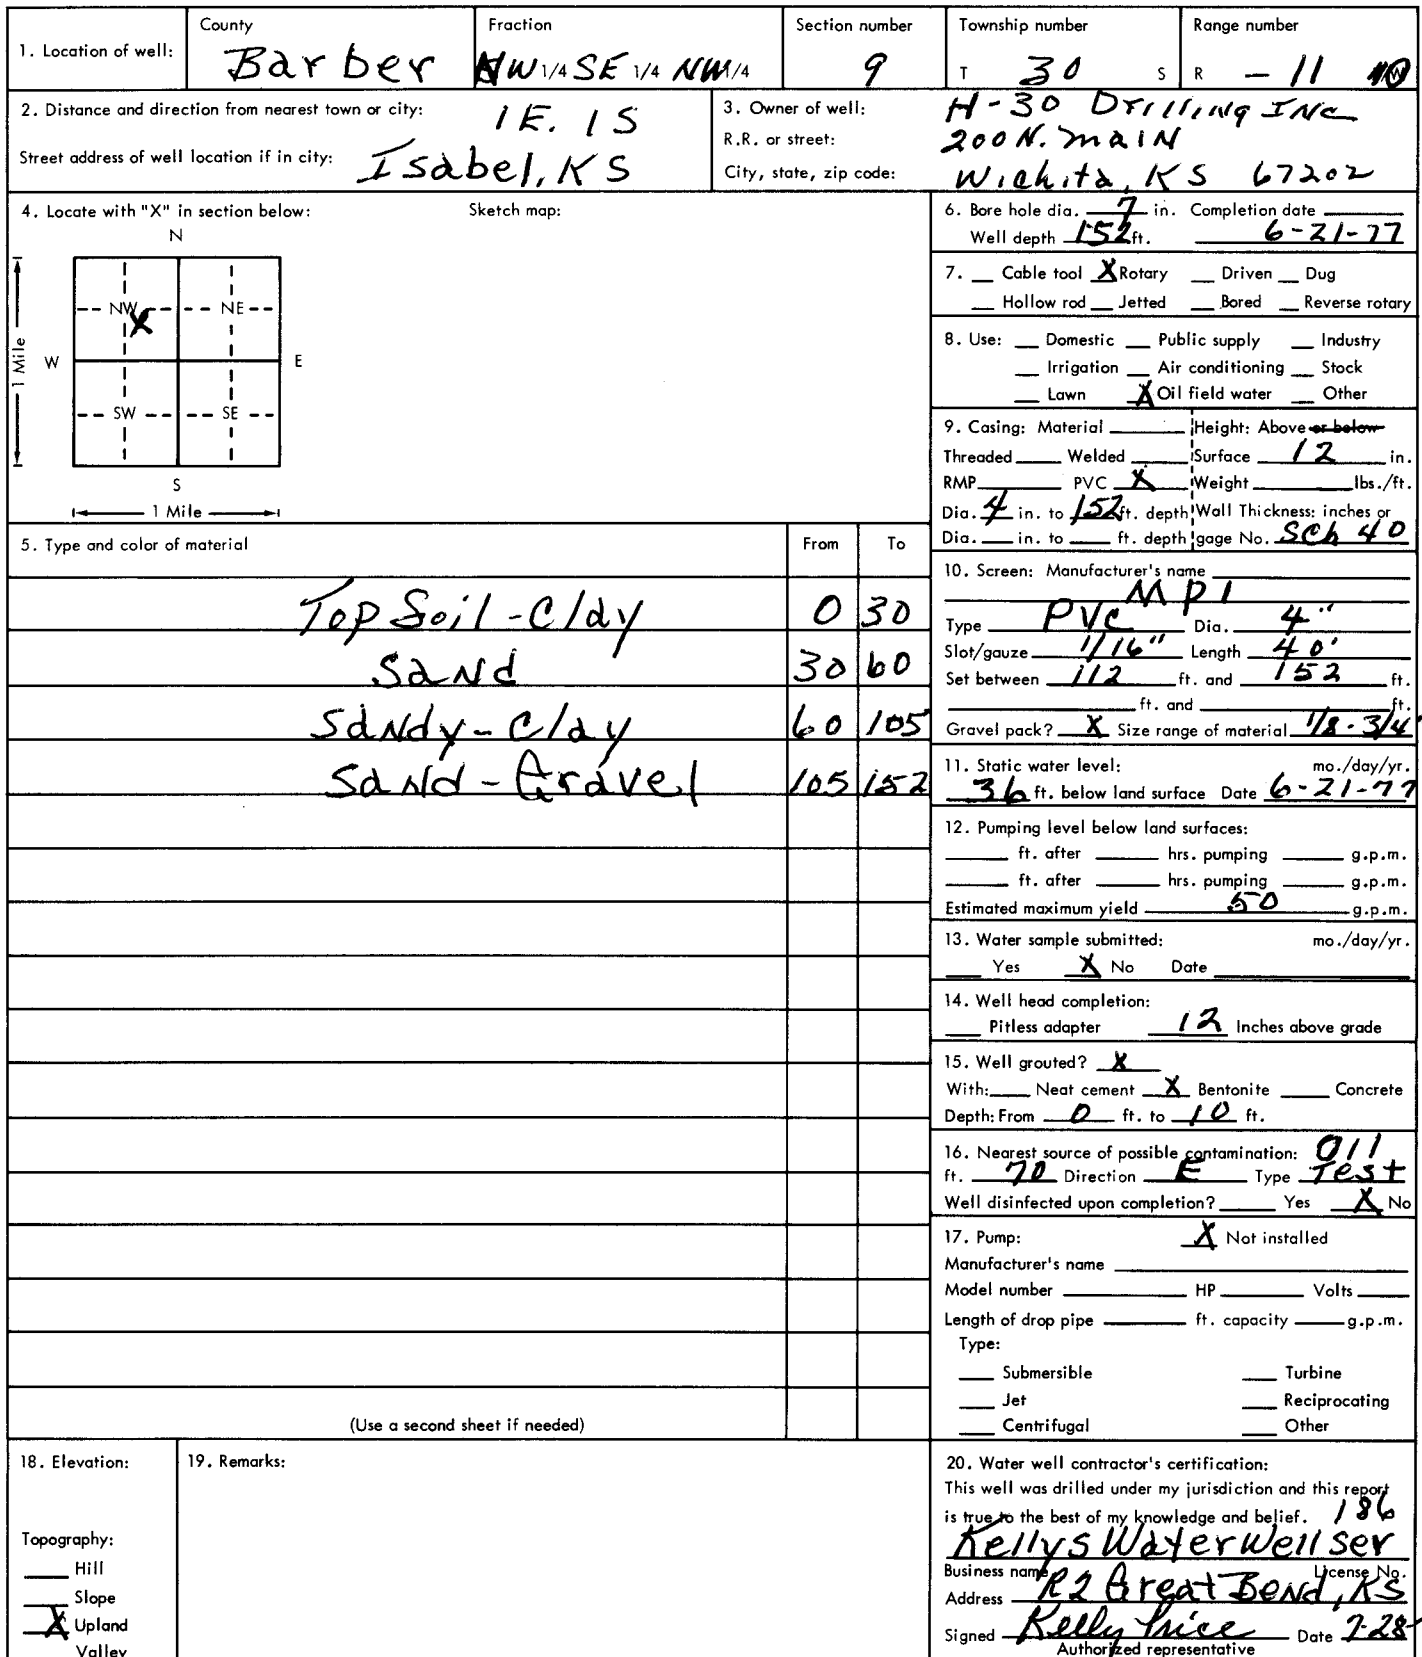 1. Location of well: County Barber Fraction NW 1/4 SE 1/4 NW 1/4 Section number 9 Township number T 30 S Range number R - 11 W
2. Distance and direction from nearest town or city: 1E. 1S
Street address of well location if in city: Isabel, KS
3. Owner of well: H-30 Drilling Inc
R.R. or street: 200 N. Main
City, state, zip code: Wichita, KS 67202
4. Locate with "X" in section below: Sketch map:
N
NW NE
X
W E
1 Mile
SW SE
S
1 Mile
5. Type and color of material From To
Top Soil - Clay 0 30
Sand 30 60
Sandy - Clay 60 105
Sand - Gravel 105 152
(Use a second sheet if needed)
6. Bore hole dia. 7 in. Completion date
Well depth 152 ft. 6-21-77
7. __ Cable tool X Rotary __ Driven __ Dug
__ Hollow rod __ Jetted __ Bored __ Reverse rotary
8. Use: __ Domestic __ Public supply __ Industry
__ Irrigation __ Air conditioning __ Stock
__ Lawn X Oil field water __ Other
9. Casing: Material ____ Height: Above or below
Threaded ____ Welded ____ Surface 12 in.
RMP ____ PVC X Weight ____ lbs./ft.
Dia. 4 in. to 152 ft. depth Wall Thickness: inches or
Dia. __ in. to __ ft. depth gage No. Sch 40
10. Screen: Manufacturer's name
MPI
Type PVC Dia. 4"
Slot/gauze 1/16" Length 40'
Set between 112 ft. and 152 ft.
____ ft. and ____ ft.
Gravel pack? X Size range of material 1/8 - 3/4"
11. Static water level: mo./day/yr.
36 ft. below land surface Date 6-21-77
12. Pumping level below land surfaces:
____ ft. after ____ hrs. pumping ____ g.p.m.
____ ft. after ____ hrs. pumping ____ g.p.m.
Estimated maximum yield 50 g.p.m.
13. Water sample submitted: mo./day/yr.
__ Yes X No Date ____
14. Well head completion:
__ Pitless adapter 12 Inches above grade
15. Well grouted? X
With: __ Neat cement X Bentonite __ Concrete
Depth: From 0 ft. to 10 ft.
16. Nearest source of possible contamination: Oil
ft. 70 Direction E Type Test
Well disinfected upon completion? __ Yes X No
17. Pump: X Not installed
Manufacturer's name ____
Model number ____ HP ____ Volts ____
Length of drop pipe ____ ft. capacity ____ g.p.m.
Type:
__ Submersible __ Turbine
__ Jet __ Reciprocating
__ Centrifugal __ Other
18. Elevation:
Topography:
__ Hill
__ Slope
X Upland
Valley
19. Remarks:
20. Water well contractor's certification:
This well was drilled under my jurisdiction and this report
is true to the best of my knowledge and belief. 186
Kellys Water Well Ser
Business name License No.
Address R2 Great Bend, KS
Signed Kelly Price Date 7-28-
Authorized representative